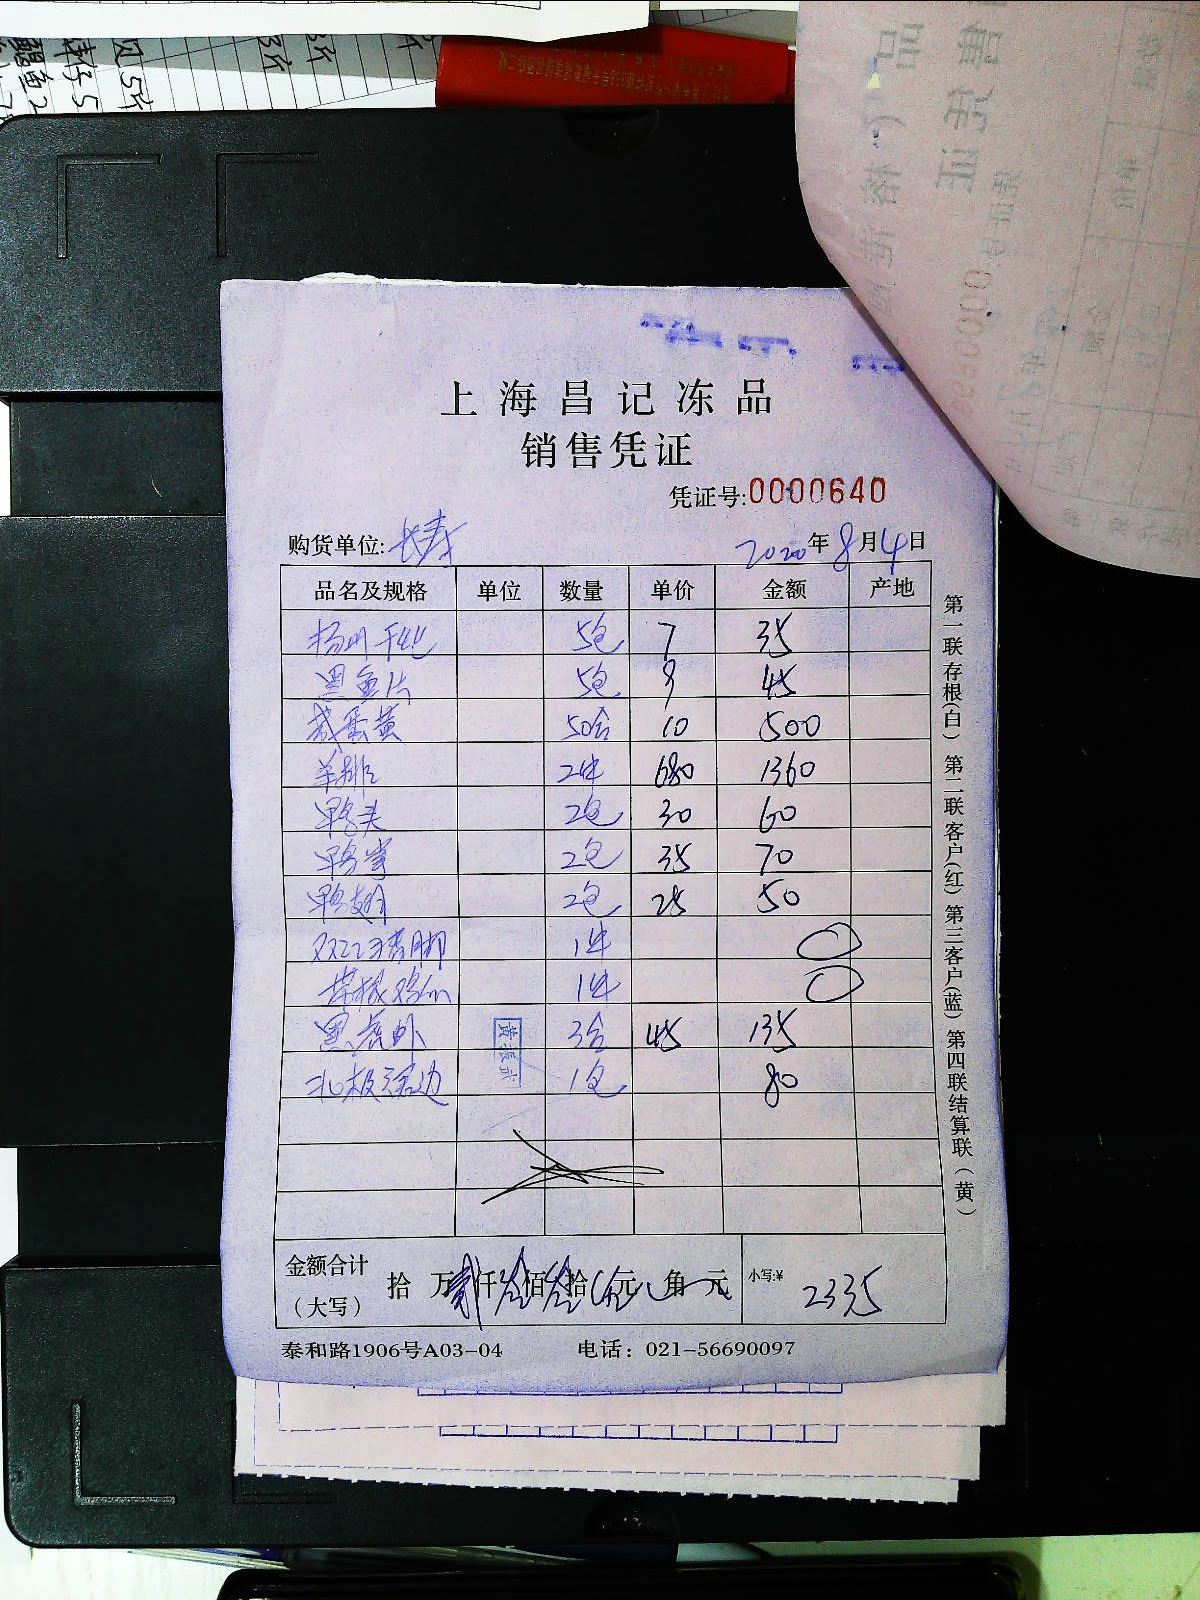 上海昌记冻品
销售凭证
凭证号:0000640
购货单位: 长寿 2020年8月4日
品名及规格 单位 数量 单价 金额 产地
扬州干丝 5包 7 35
黑鱼片 5包 9 45
咸蛋黄 50合 10 500
羊排 2件 680 1360
鸭头 2包 30 60
鸭掌 2包 35 70
鸭翅 2包 25 50
双汇猪脚 1件
1件
黑虎虾 3合 45 135
北极 边 1包 80
黄振武
金额合计
(大写)
拾 万贰仟叁佰叁拾伍元 角 元 小写:¥ 2335
泰和路1906号A03-04 电话：021-56690097
第一联存根(白) 第二联客户(红) 第三客户(蓝) 第四联结算联(黄)